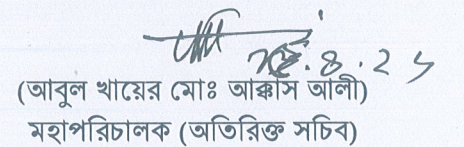 (আবুল খায়ের মোঃ আক্কাস আলী)
মহাপরিচালক (অতিরিক্ত সচিব)